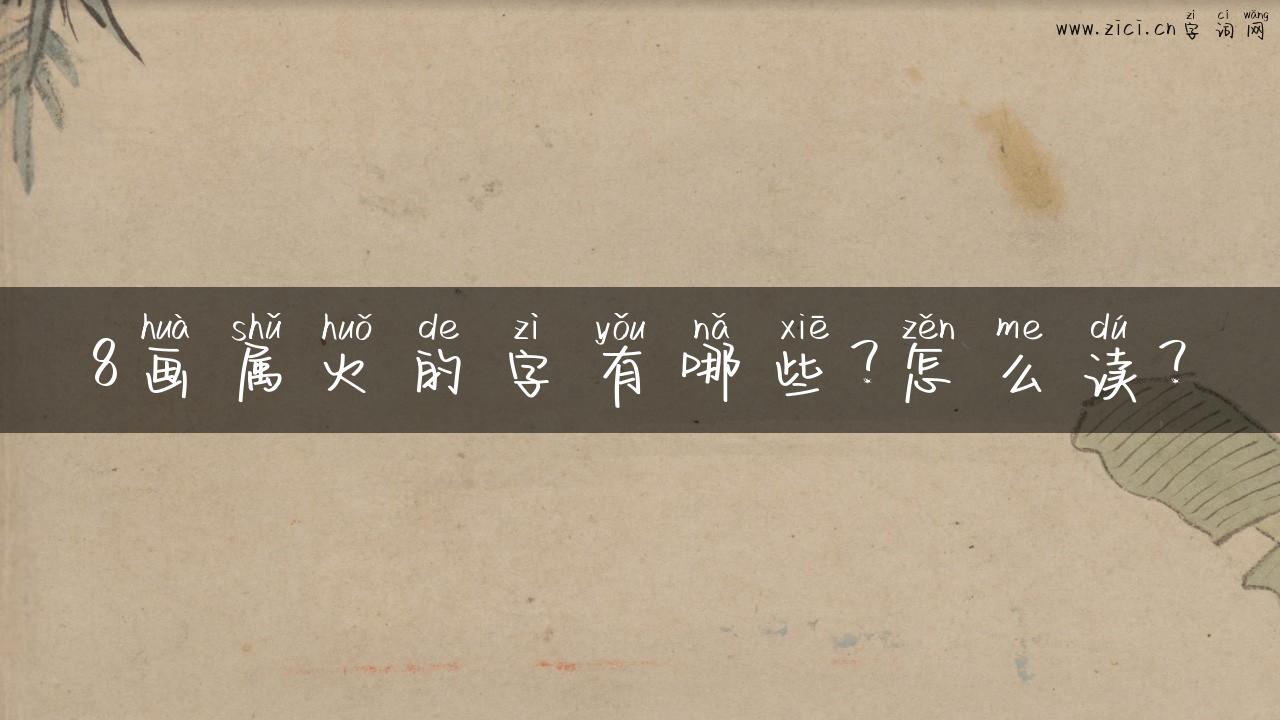 zì cí wǎng
www.zici.cn字词网
huà shǔ huǒ de zì yǒu nǎ xiē zěn me dú
8画属火的字有哪些?怎么读?